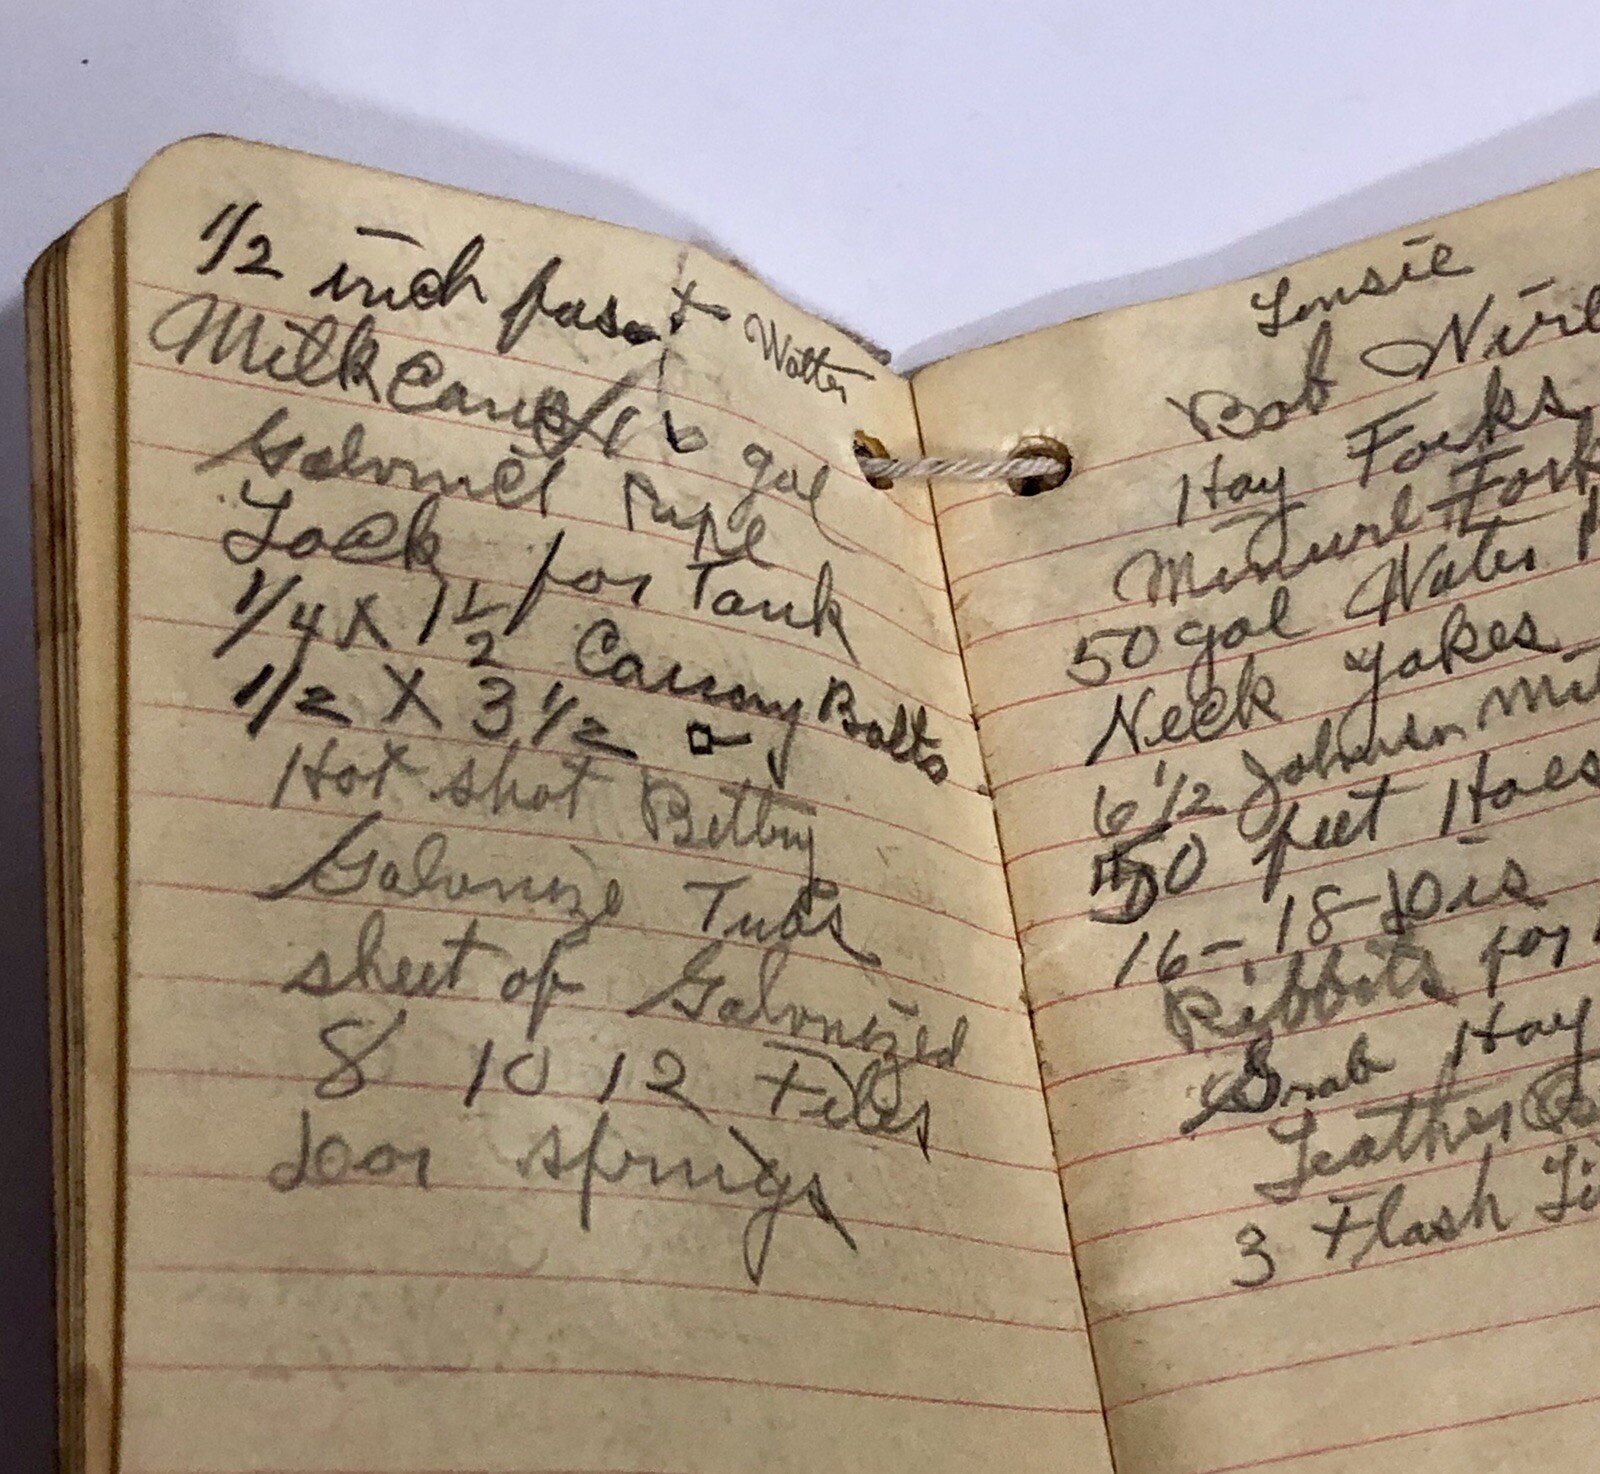 1/2 inch faset Watter
Milk Cans 10 gal
Galvniet Pipe
Jack for Tank
1/4 X 1 1/2 Carrony Bolts
1/2 X 3 1/2 "
Hot shot Bettry
Galvnize Tubs
sheet of Galvnized
8 10 12 Files
Door springs
Bob
Hay Forks
Minurl Fork
50 gal Water
Neck Yokes
6 1/2 Johnson
50 feet Hoes
16-18 Dis
Ribbits for
Grab Hay
Leather
3 Flash Li